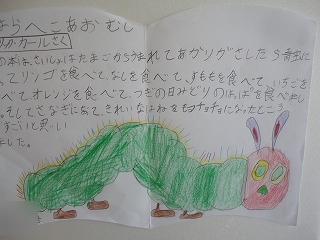 はらぺこあおむし
エリック・カールさく
の本は、さいしょはたまごからうまれてあがりがさしたら
、てリンゴを食べて、なしを食べて、すももを食べて、いちごを
べてオレンジを食べて、つぎの日みどりのはっぱを食べ
。そしてさなぎになて、きれいなはねをもつチョチョになったところ
すごいと思い
ました。